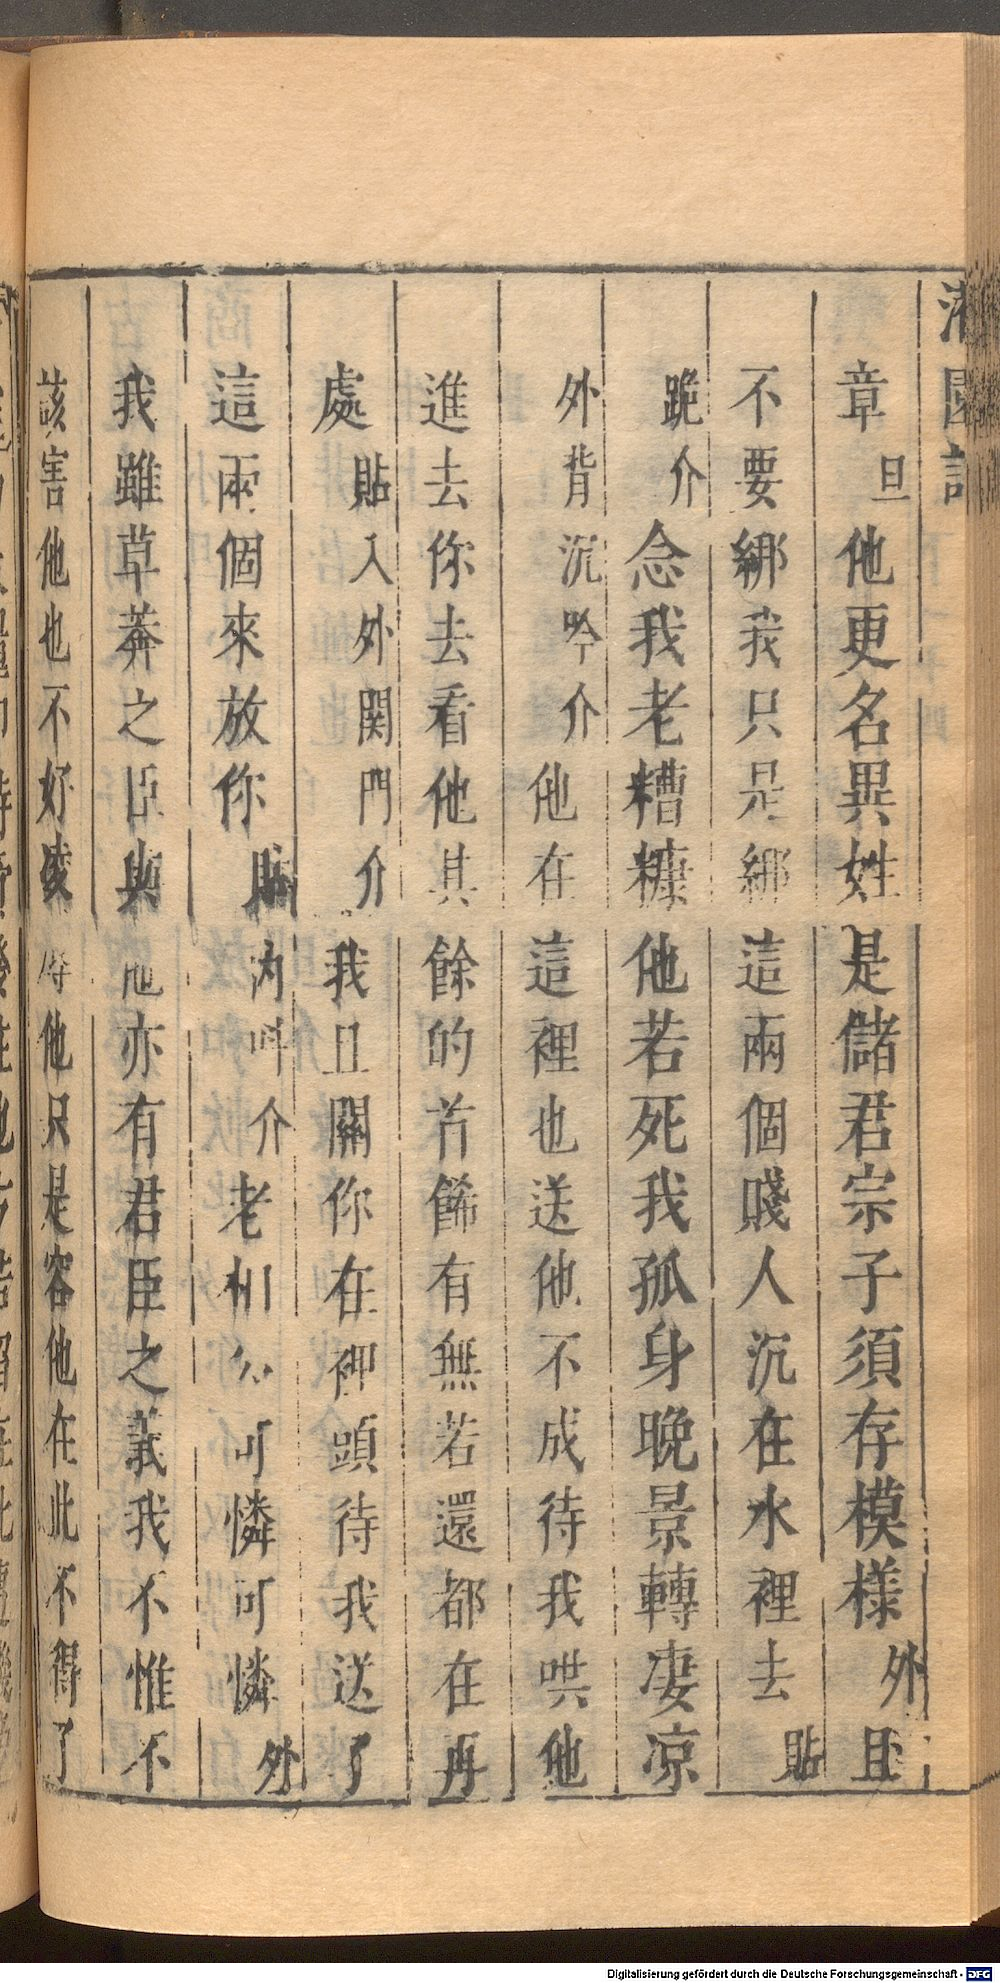 園記
章旦他更名異姓是儲君宗子須存模樣外且
不要綁我只是綁這兩個賤人沉在水裡去貼
跪介念我老糟糠他若死我孤身晚景轉淒凉
外背沉吟介他在這裡也送他不成待我哄他
進去你去看他其餘的首餙有無若還都在再
處貼入外関門介我且關你在裡頭待我送了
這兩個來放你貼內呌介老相公可憐可憐外
我雖草莽之臣與他亦有君臣之義我不惟不
該害他也不好凌辱他只是容他在此不得了
Digitalisierung gefördert durch die Deutsche Forschungsgemeinschaft - DFG